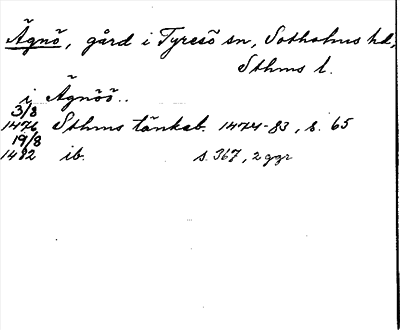 Ägnö, gård i Tyresö sn, Sotholms hd,
Sthms l.
i Ägnöö..
3/8
1476 Sthms tänkeb. 1474-83, s. 65
19/8
1482 ib. s. 367, 2 ggr